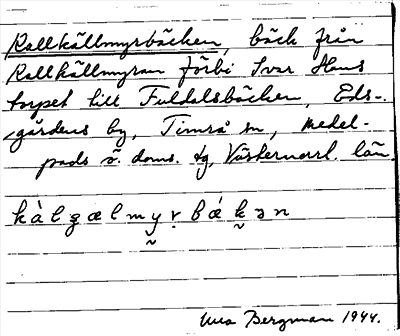 Kallkällmyrbäcken, bäck från
Kallkällmyran förbi Ivar Hans
torpet till Fuldalsbäcken, Eds-
gårdens by, Timrå sn, Medel-
pads ö. doms. tg, Västernorrl. län.
kàlgælmyrbækən
Bergman 1944.